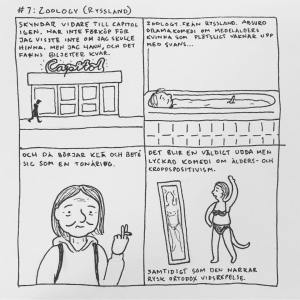 #7: ZOOLOGY (RYSSLAND)
SKYNDAR VIDARE TILL CAPITOL
IGEN. HAR INTE FÖRKÖP FÖR
JAG VISSTE INTE OM JAG SKULLE
HINNA, MEN JAG HANN, OCH DET
FANNS BILJETTER KVAR.
Capitol
ZOOLOGY FRÅN RYSSLAND. ABSURD
DRAMAKOMEDI OM MEDELÅLDERS
KVINNA SOM PLÖTSLIGT VAKNAR UPP
MED SVANS...
OCH DÅ BÖRJAR KLÄ OCH BETE
SIG SOM EN TONÅRING.
DET BLIR EN VÄLDIGT UDDA MEN
LYCKAD KOMEDI OM ÅLDERS- OCH
KROPPSPOSITIVISM.
SAMTIDIGT SOM DEN NARRAR
RYSK ORTODOX VIDSKEPELSE.